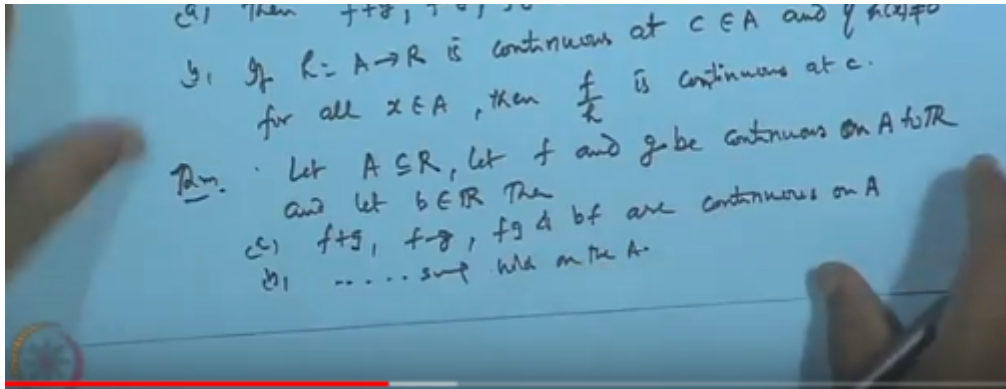 (a) Then f+g, f-g,
b, If h: A→R is continuous at c ∈ A and if h(x)≠0
for all x ∈ A, then f/h is continuous at c.
Thm. Let A ⊆ R, let f and g be continuous on A to R
and let b ∈ R Then
(a) f+g, f-g, fg & bf are continuous on A
b, ..... hold on the A.